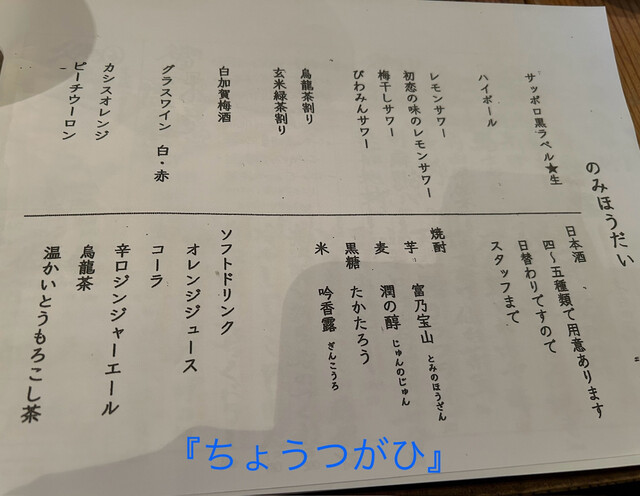 のみほうだい
サッポロ黒ラベル★生
ハイボール
レモンサワー
初恋の味のレモンサワー
梅干しサワー
びわみんサワー
烏龍茶割り
玄米緑茶割り
白加賀梅酒
グラスワイン 白・赤
カシスオレンジ
ピーチウーロン
日本酒
四〜五種類で用意あります
日替わりですので
スタッフまで
焼酎
芋 富乃宝山 とみのほうざん
麦 潤の醇 じゅんのじゅん
黒糖 たかたろう
米 吟香露 ぎんこうろ
ソフトドリンク
オレンジジュース
コーラ
辛口ジンジャーエール
烏龍茶
温かいとうもろこし茶
『ちょうつがひ』